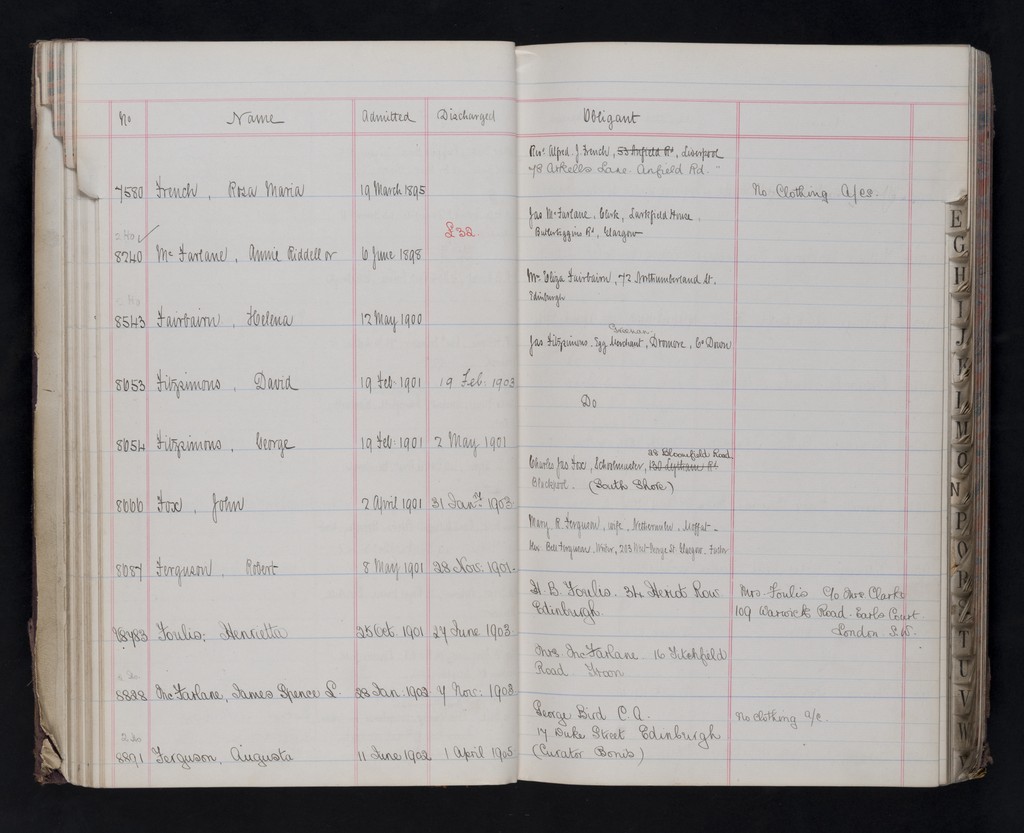 No Name Admitted Discharged Obligant
Revd. Alfred J. French, 53 Anfield Rd, Liverpool
78 Arkells Lane. Anfield Rd.
7580 French, Roza Maria 19 March 1895 No Clothing A/cs.
£32
Jas McFarlane, Clerk, Larkfield House,
Butterbiggins Rd, Glasgow
8240 Mc Farlane, Annie Riddell or 6 June 1898
Mrs Eliza Fairbairn, 72 Northumberland St.
Edinburgh
8543 Fairbairn, Helena 12 May 1900
Jas Fitzsimons. Egg Merchant, Dromore, Co Down
8653 Fitzsimons, David 19 Feb: 1901 19 Feb: 1903
Do
8654 Fitzsimons, George 19 Feb: 1901 2 May 1901
28 Bloomfield Road
Charles Jas Fox, Schoolmaster, 130 Lytham Rd
Blackpool. (South Shore)
8666 Fox, John 2 April 1901 31 Jany. 1903
Mary R. Ferguson, wife, Moffat
Ferguson, 203 West George St. Glasgow.
8687 Ferguson, Robert 8 May 1901 28 Nov. 1901
H. B. Foulis. 34 Heriot Row Mrs Foulis c/o Mrs Clarke
Edinburgh 109 Warwick Road. Earls Court
London. S.W.
8783 Foulis, Henrietta 25 Oct. 1901 27 June 1903
Mrs. McFarlane. 16 Titchfield
Road Troon
8828 Mc Farlane, James Spence L. 28 Jan. 1902 7 Nov: 1903
George Bird C.A. No clothing a/c.
17 Duke Street Edinburgh
(Curator Bonis)
8891 Ferguson, Augusta 11 June 1902 1 April 1905
E
G
H
I
J
K
L
M
O
N
P
Q
R
S
T
U
V
W
Y